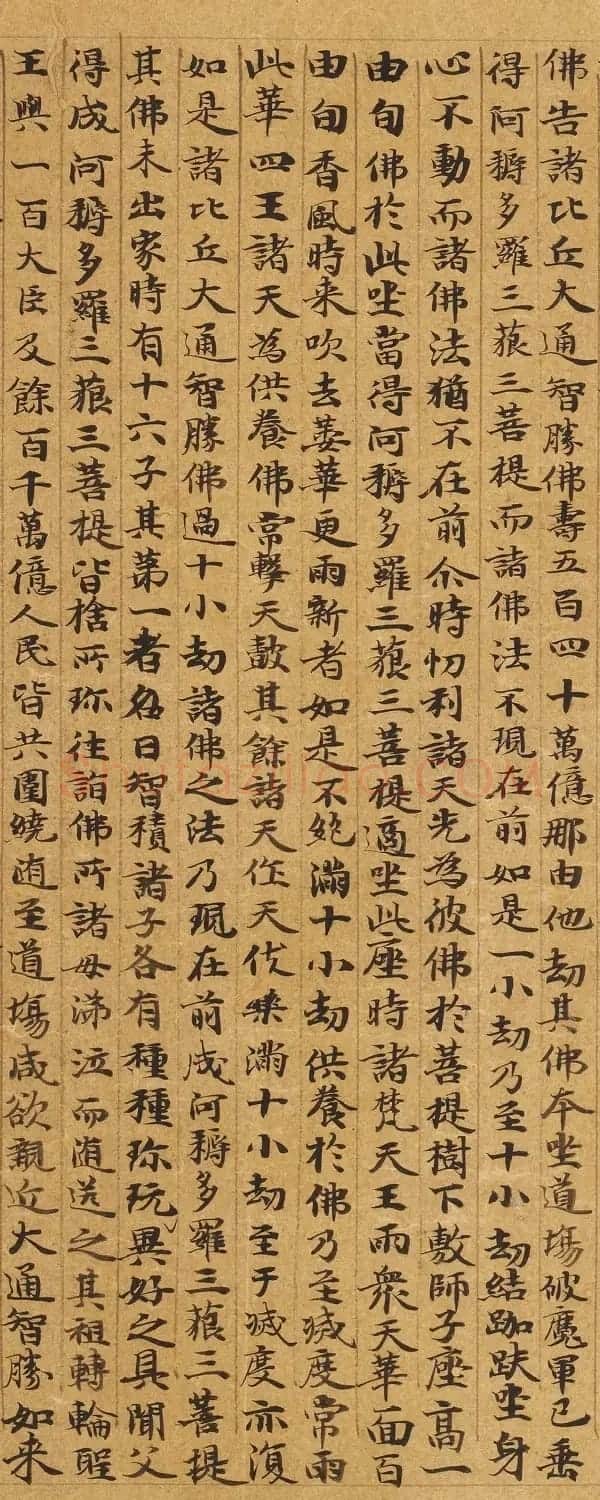 佛告諸比丘大通智勝佛壽五百四十萬億那由他劫其佛本坐道塲破魔軍已垂
得阿耨多羅三藐三菩提而諸佛法不現在前如是一小劫乃至十小劫結跏趺坐身
心不動而諸佛法猶不在前尒時忉利諸天先為彼佛於菩提樹下敷師子座高一
由旬佛於此坐當得阿耨多羅三藐三菩提適坐此座時諸梵天王雨衆天華面百
由旬香風時来吹去萎華更雨新者如是不絶滿十小劫供養於佛乃至滅度常雨
此華四王諸天為供養佛常擊天皷其餘諸天作天伎樂滿十小劫至于滅度亦復
如是諸比丘大通智勝佛過十小劫諸佛之法乃現在前成阿耨多羅三藐三菩提
其佛未出家時有十六子其第一者名曰智積諸子各有種種珎玩異好之具聞父
得成阿耨多羅三藐三菩提皆捨所珎往詣佛所諸母涕泣而隨送之其祖轉輪聖
王與一百大臣及餘百千萬億人民皆共圍繞隨至道塲咸欲親近大通智勝如来